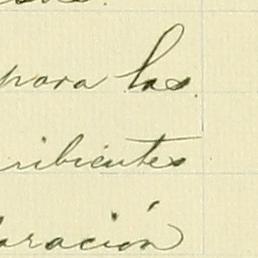 para las
ribientes
aración